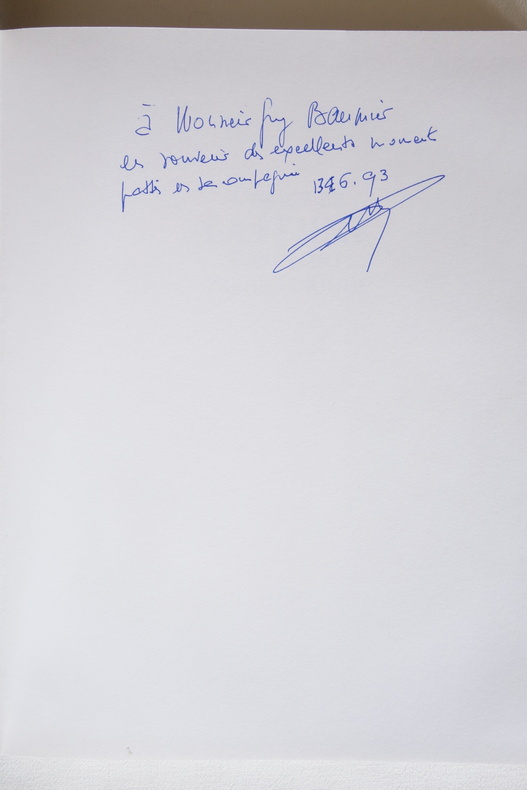 à Monsieur Guy Baumier
en souvenir des excellents moment
passés en sa compagnie 13.6.93